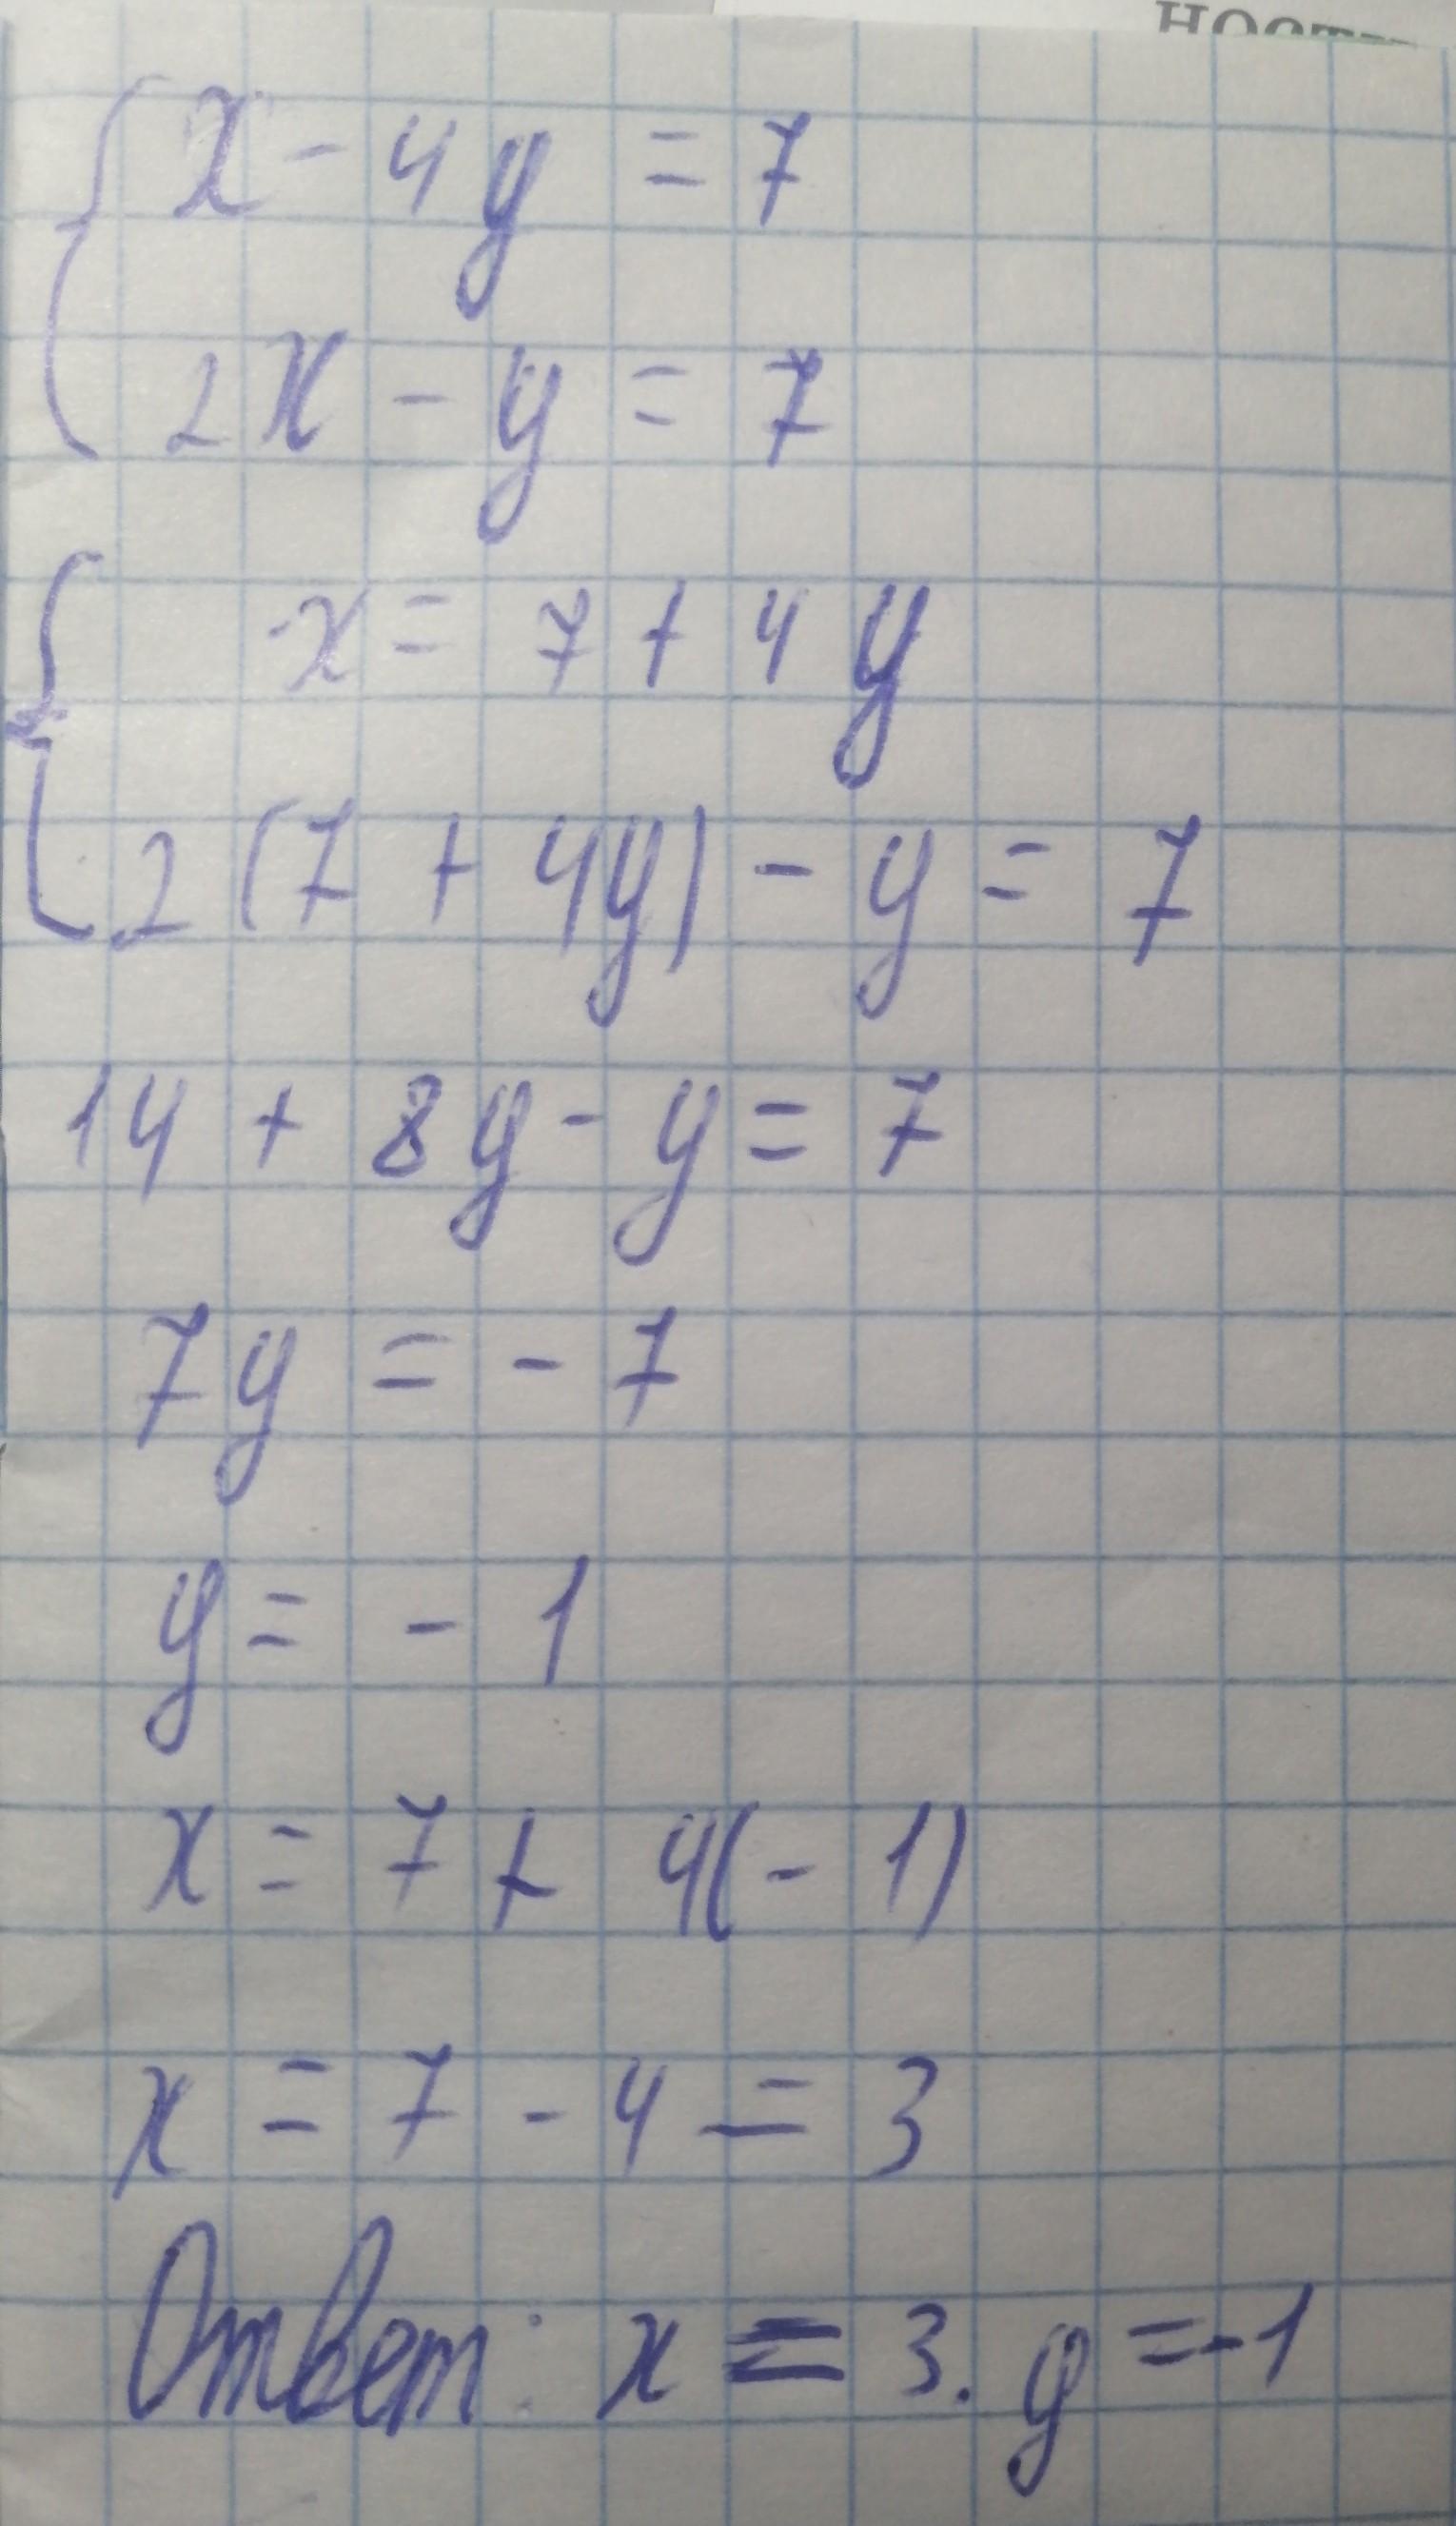 x - 4y = 7
2x - y = 7
x = 7 + 4y
2(7 + 4y) - y = 7
14 + 8y - y = 7
7y = -7
y = -1
x = 7 + 4(-1)
x = 7 - 4 = 3
Ответ: x = 3. y = -1